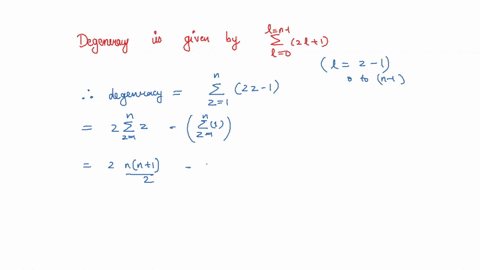 Degeneracy is given by ∑_{l=0}^{l=n-1} (2l+1)
(l = z-1)
0 to (n-1)
∴ degenracy = ∑_{z=1}^{n} (2z-1)
= 2 ∑_{z=1}^{n} z - (∑_{z=1}^{n} (1))
= 2 n(n+1)/2 -